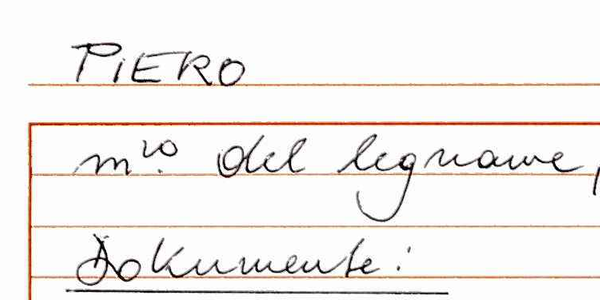 PiERO
m.ro del legname,
Dokumente: